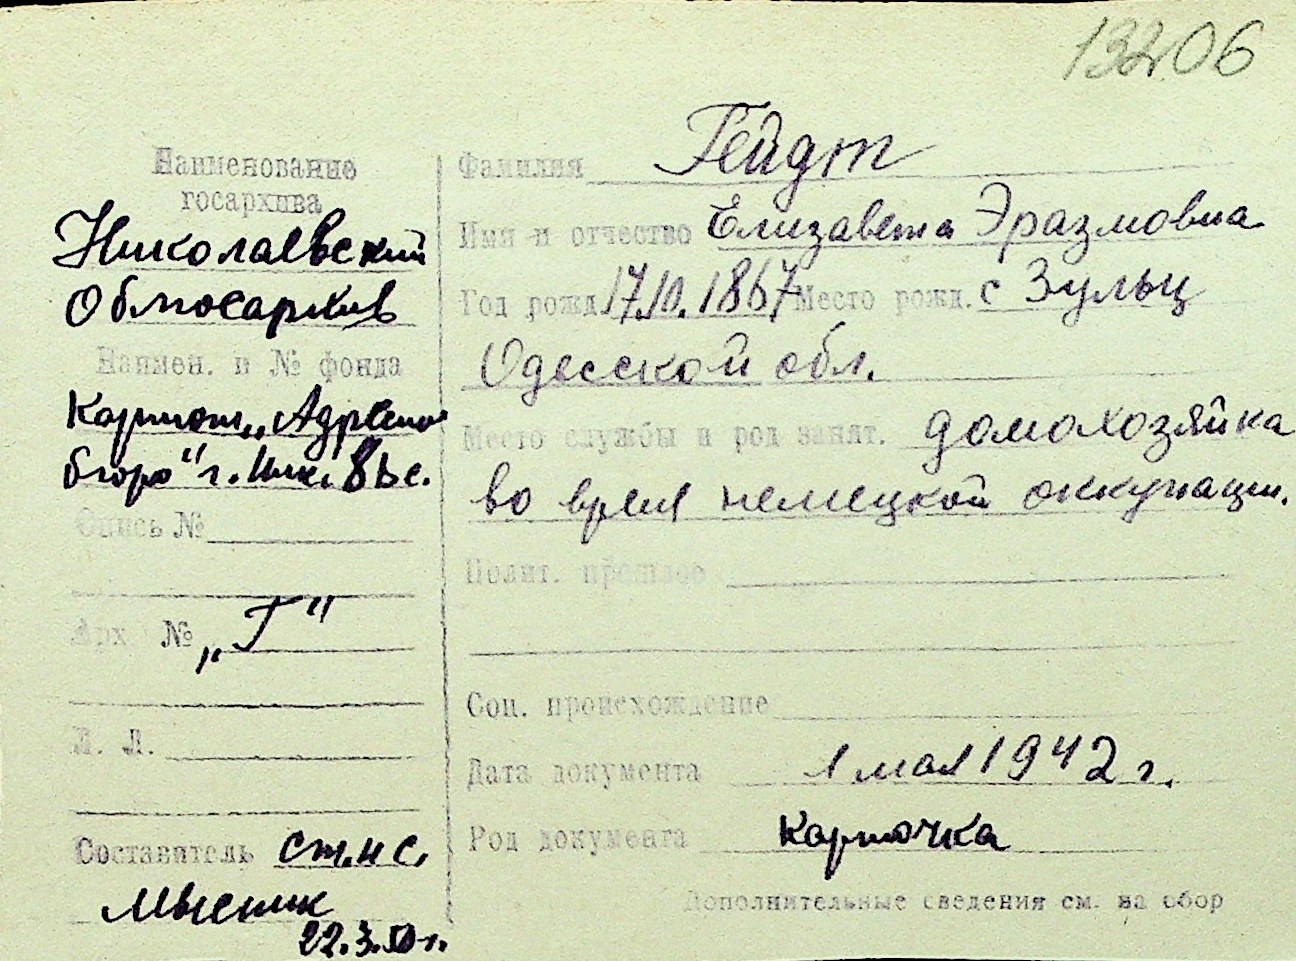 13206
Наименование
госархива
Николаевский
Облгосархив
Наимен. и № фонда
Картот. „Адресное
бюро" г. Ник.
Опись №
Арх № „Г"
Л. Л.
Составитель ст.н.с.
22.3.50 г.
Фамилия Гейдт
Имя и отчество Елизавета Эразмовна
Год рожд. 17.10.1867 Место рожд. с Зульц
Одесской обл.
Место службы и род занят. домохозяйка
во время немецкой оккупации.
Полит. прошлое
Соц. происхождение
Дата документа 1 мая 1942 г.
Род документа карточка
Дополнительные сведения см. на обор